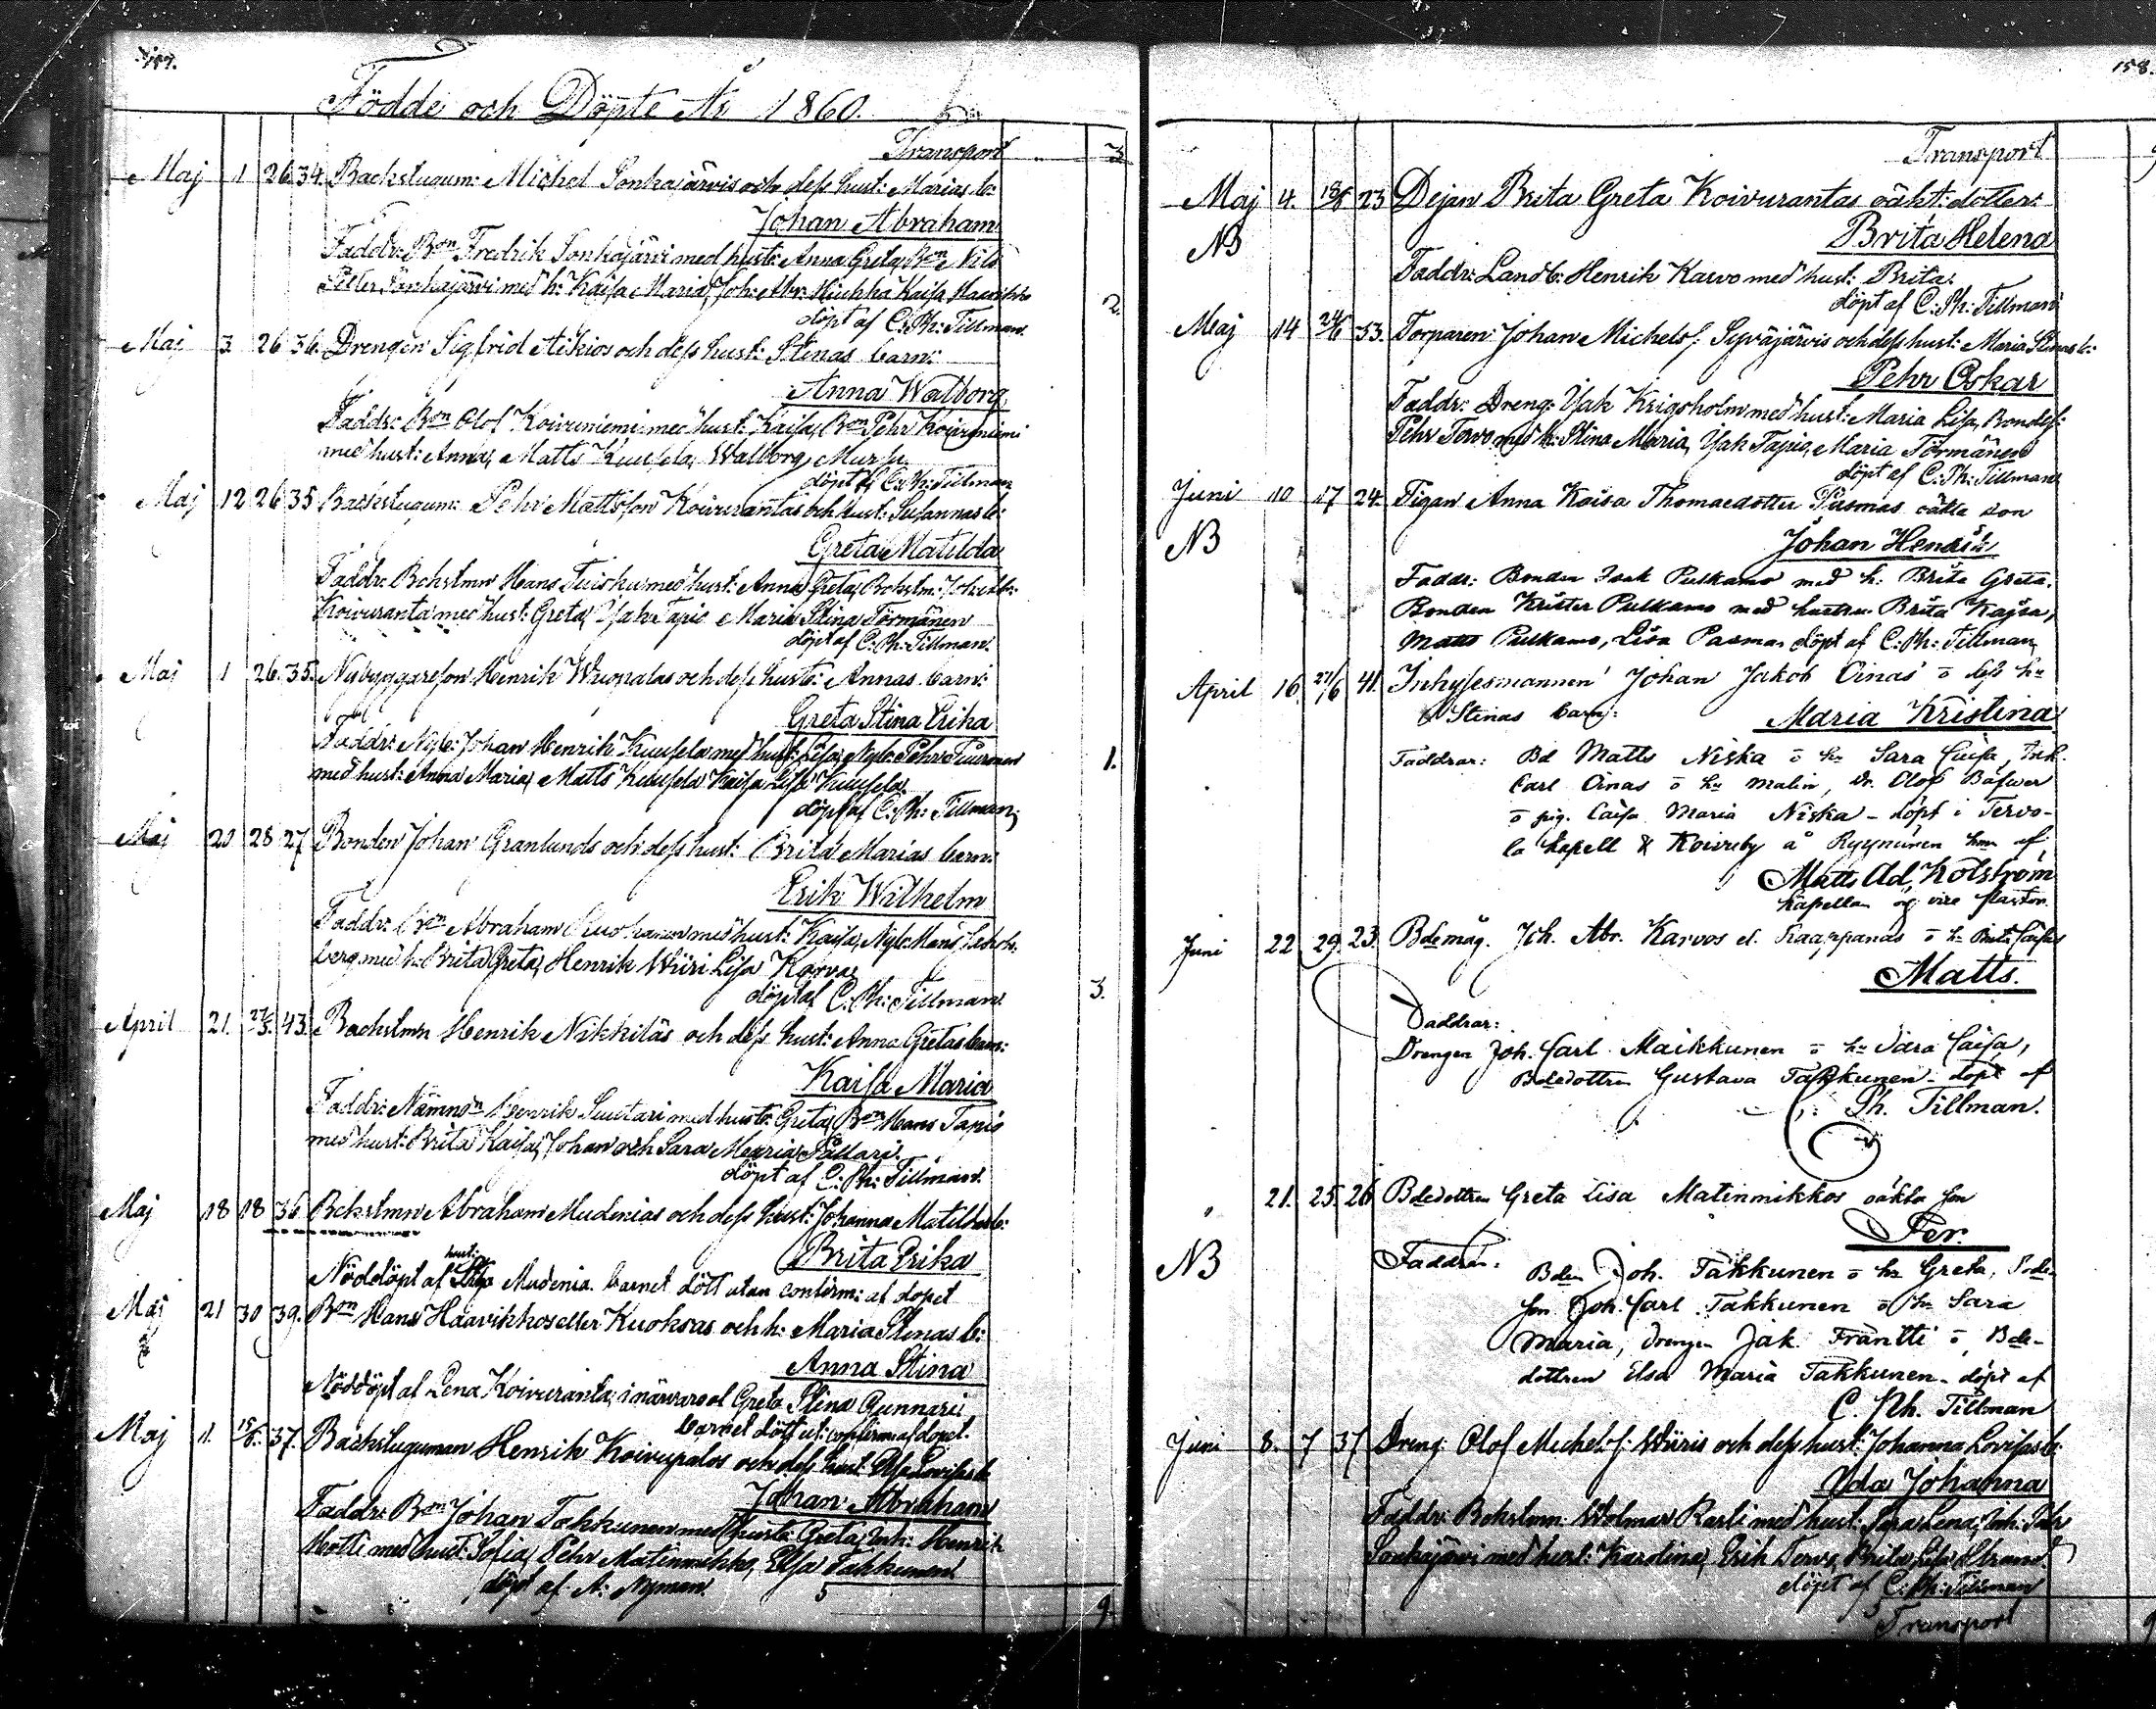 157.
Födde och Döpte År 1860.
Transport 3
Maj 1 26 34. Backstugum: Michel Sonkajärvis och dess hust: Marias b:
Johan Abraham
Faddr: Bon Fredrik Sonkajärvi med hust: Anna Greta, Bon Nils
Petter Sonkajärvi med h: Kaisa Maria, Joh: Abr: Kaisa
döpt af C: Ph: Tillman. 2.
Maj 3. 26 36. Drengen Sigfrid Aikios och dess hust: Stinas barn:
Anna Walborg
Faddr: Bon Olof Koivuniemi med hust: Kaisa, Bon Pehr Koivuniemi
med hust: Anna, Matts Kuusela, Walborg Mursu
döpt af C: Ph: Tillman
Maj 12 26 35 Backstugum: Pehr Mattsson Koivurantas och hust: Susannas b:
Greta Matilda
Faddr: Bckstmn Hans Tuisku med hust: Anna Greta, Bckstm:
Koivuranta med hust: Greta, Isak Tapio Maria Stina Törmänen
döpt af C: Ph: Tillman.
Maj 1 26. 35. Nybyggareson Henrik Wuopalas och dess hust: Annas barn:
Greta Stina Erika
Faddr: Nyb: Johan Henrik Kuusela med hust: Lisa, Nyb: Pehr
med hust: Anna Maria, Matts Kuusela Kaisa Lisa Kuusela 1.
döpt af C: Ph: Tillman,
Maj 20 28 27 Bonden Johan Granlunds och dess hust: Brita Marias barn:
Erik Wilhelm
Faddr: Bon Abraham med hust: Kaisa, Nyb: Hans
berg med h: Brita Greta, Henrik Wiiri Lisa Karvo
döpt af C: Ph: Tillman 3.
April 21. 27/5. 43. Backstmn Henrik Nikkiläs och dess hust: Anna Gretas barn:
Kaisa Maria
Faddr: Nämnn Henrik Suutari med hust: Greta, Bon Hans Tapio
med hust: Brita Kaisa, Johan och Sara Maria Pallari.
döpt af C: Ph: Tillman.
Maj 18 18 36 Bckstmn Abraham Mudenias och dess hust: Johanna Matildas b:
Brita Erika
hust:
Nöddöpt af Mudenia. barnet dött utan confirm: af dopet
Maj 21 30 39. Bon Hans Haavikkos eller Kuoksas och h: Maria Stinas b:
Anna Stina
Nöddöpt af Lena Koivuranta, i närvaro af Greta Stina Gunnari
barnet dött ut: confirm: af dopet.
Maj 11. 15/6. 37. Backstuguman Henrik Koivupalos och dess hust: Elsa Lovisas b:
Johan Abraham
Faddr: Bon Johan Takkunen med hust: Greta, Inh: Henrik
Motti med hust: Sofia, Pehr Matinmikko, Elsa Takkunen
döpt af A: Nyman 5
9.
158.
Transport 9
Maj 4. 10/6 23 Pejan Brita Greta Koivurantas oäkt: dotter:
NB Brita Helena
Faddr: Landb: Henrik Karvo med hust: Brita.
döpt af C: Ph: Tillman
Maj 14 24/6 53. Torparen: Johan Michels: Syväjärvis och dess hust: Maria Stinas b:
Pehr Oskar
Faddr: Dreng: Isak Krigsholm med hust: Maria Lisa, Bondes:
Pehr Tervo med h: Stina Maria, Isak Tapio, Maria Törmänen
döpt af C: Ph: Tillman
Juni 10 17 24. Pigan Anna Kaisa Thomasdotter Pasmas oäkta son
NB Johan Henrik
Faddr: Bonden Isak Pulkamo med h: Brita Greta.
Bonden Krister Pulkamo med hustru Brita Kajsa,
Matts Pulkamo, Lisa Pasma döpt af C: Ph: Tillman,
April 16. 27/6 41. Inhysesmannen Johan Jakob Oinas o dess hu
Stinas barn: Maria Kristina
Faddrar: Bd Matts Niska o hu Sara Caisa, Inh.
Carl Oinas o hu Malin, Dr. Olof Båfwer
o pig. Caisa Maria Niska - döpt i Tervo-
la Kapell & Koivuby å Ryynänen hem af
Matts Ad, Kolström
Kapellan og vice Pastor.
Juni 22 29. 23. Bdemåg. Joh. Abr. Karvos el. Kaappanas o hu Brita Caisas
Matts.
Faddrar:
Drengen Joh. Carl Maikkunen o hu Sara Caisa,
Bdedottren Gustava Takkunen - döpt af
Ph. Tillman.
" 21. 25. 26 Bdedottren Greta Lisa Matinmikkos oäkta son
Per.
NB Faddrar: Bden Joh. Takkunen o hu Greta, Bde-
son Joh. Carl Takkunen o hu Sara
Maria, drengen Jak. Frantti o Bde-
dottren Elsa Maria Takkunen - döpt af
C. Ph. Tillman
Juni 8. 7 37 Dreng: Olof Michels: Wiiris och dess hust: Johanna Lovisas b:
Ida Johanna
Faddr: Bckstmn: Wolmar Rasti med hust: Sara Lena, Inh: Pehr
Sonkajärvi med hust: Karolina, Erik Tervo, Brita Lisa Strand.
döpt af C: Ph: Tillman
Transport 9